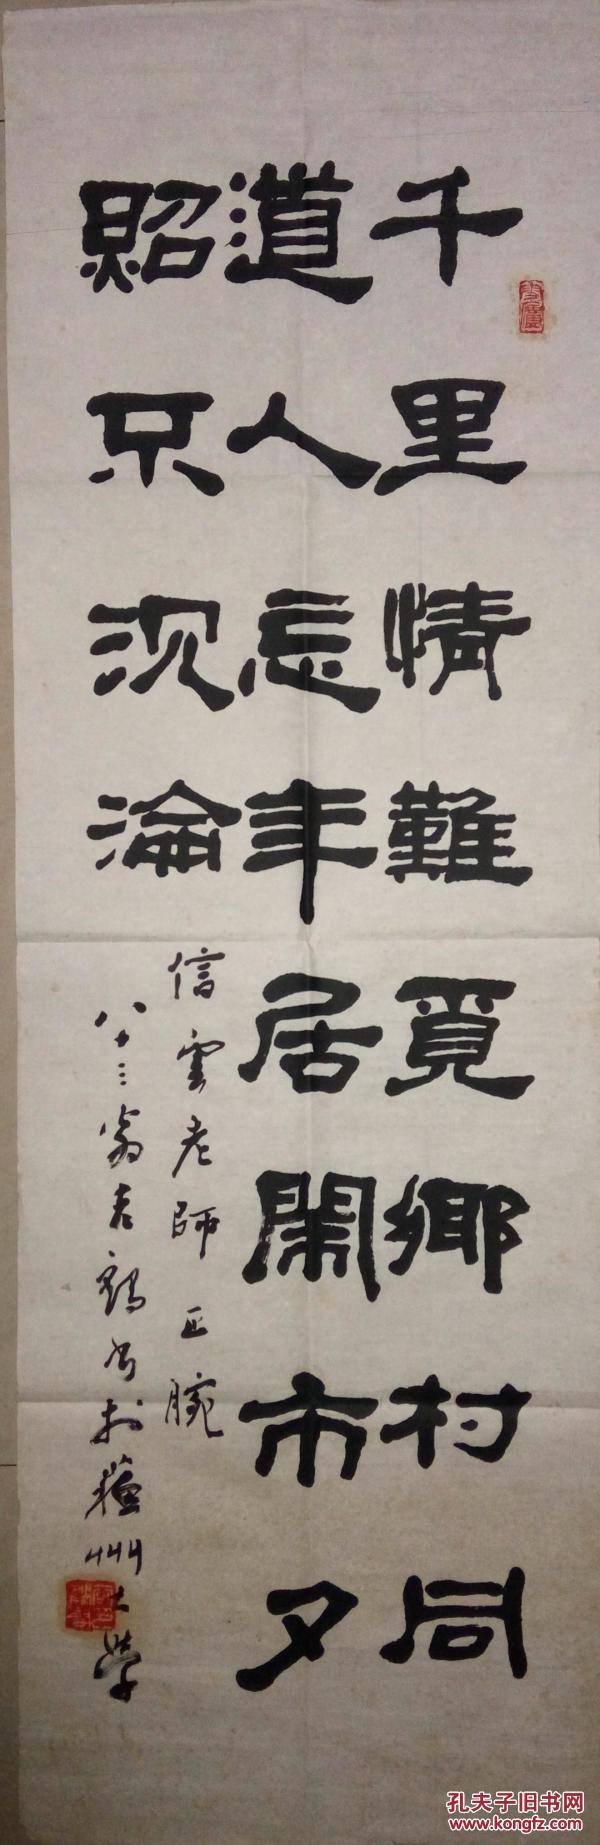 千里情難覓鄉村同
道人忘年居閙市夕
照只沉淪
信雲老師正腕
八十三翁袁鶴書於蘇州大學
孔夫子旧书网
www.kongfz.com